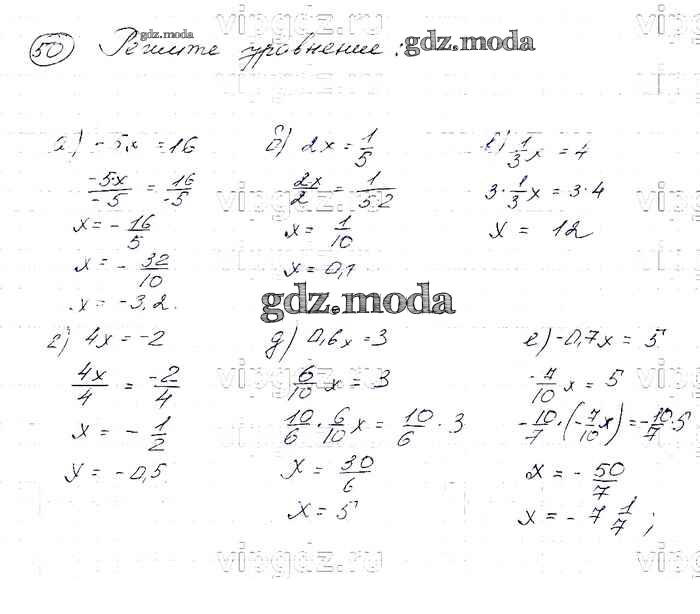 vipgdz.ru
gdz.moda
50 Решите уравнение: gdz.moda
а) -5x = 16
-5x/-5 = 16/-5
x = -16/5
x = -32/10
x = -3,2.
б) 2x = 1/5
2x/2 = 1/5·2
x = 1/10
x = 0,1
в) 1/3x = 4
3·1/3x = 3·4
x = 12
vipgdz.ru
gdz.moda
г) 4x = -2
4x/4 = -2/4
x = -1/2
x = -0,5
д) 0,6x = 3
6/10x = 3
10/6·6/10x = 10/6·3
x = 30/6
x = 5
е) -0,7x = 5
-7/10x = 5
-10/7·(-7/10x) = -10/7·5
x = -50/7
x = -7 1/7;
vipgdz.ru
vipgdz.ru